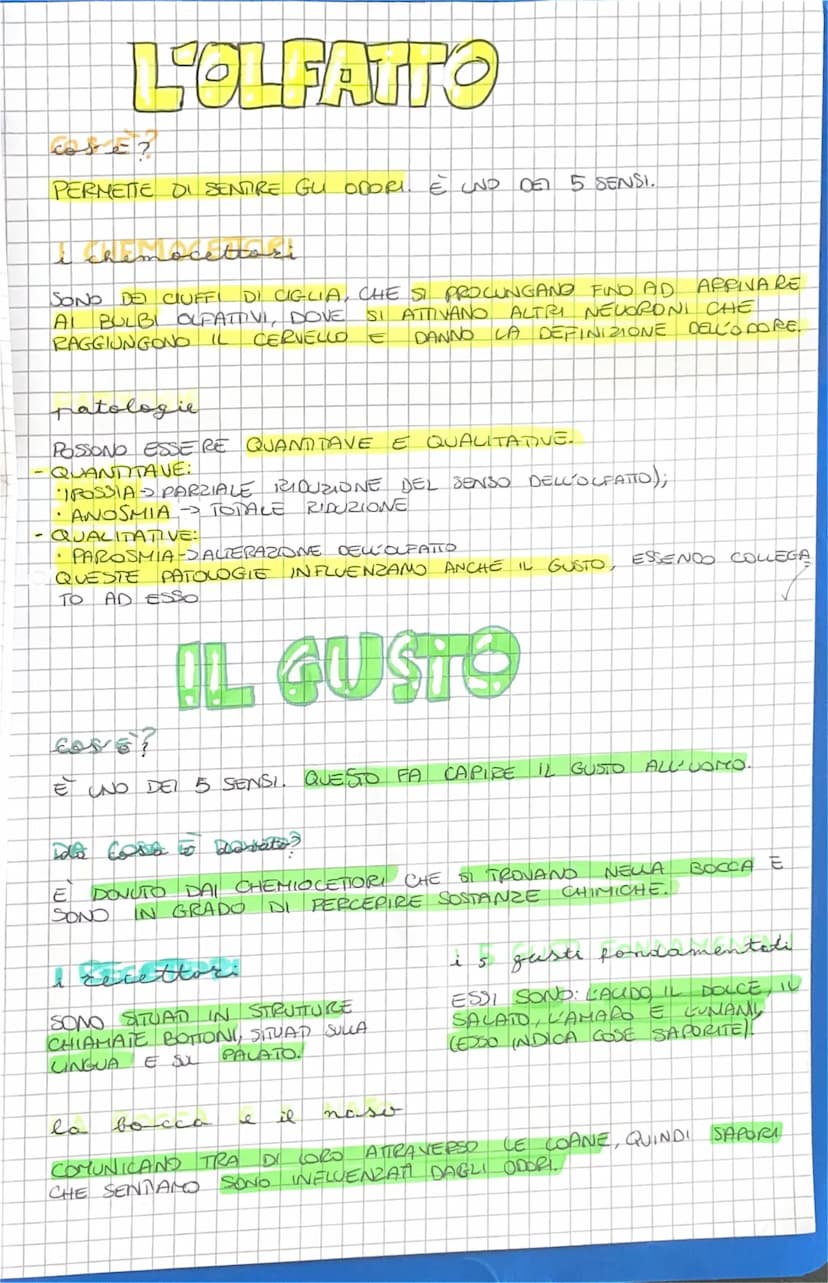 L'OLFATTO
cos'è?
PERMETTE DI SENTIRE GLI ODORI. È UNO DEI 5 SENSI.
i chemocettori
SONO DEI CIUFFI DI CIGLIA, CHE SI PROLUNGANO FINO AD ARRIVARE
AI BULBI OLFATTIVI, DOVE SI ATTIVANO ALTRI NEURONI CHE
RAGGIUNGONO IL CERVELLO E DANNO LA DEFINIZIONE DELL'ODORE.
patologie
POSSONO ESSERE QUANTITAVE E QUALITATIVE.
- QUANTITAVE:
· IPOSSIA -> PARZIALE RIDUZIONE DEL SENSO DELL'OLFATTO);
· ANOSMIA -> TOTALE RIDUZIONE
- QUALITATIVE:
· PAROSMIA -> ALTERAZIONE DELL'OLFATTO
QUESTE PATOLOGIE INFLUENZAMO ANCHE IL GUSTO, ESSENDO COLLEGA
TO AD ESSO
IL GUSTO
cos'è?
È UNO DEI 5 SENSI. QUESTO FA CAPIRE IL GUSTO ALL'UOMO.
Da cosa è dovuto?
E' DOVUTO DAI CHEMIOCETTORI CHE SI TROVANO NELLA BOCCA E
SONO IN GRADO DI PERCEPIRE SOSTANZE CHIMICHE.
i recettori
SONO SITUATI IN STRUTTURE
CHIAMATE BOTTONI, SITUATI SULLA
LINGUA E SUL PALATO.
i 5 gusti fondamentali
ESSI SONO: L'ACIDO, IL DOLCE, IL
SALATO, L'AMARO E L'UMAMI,
(ESSO INDICA COSE SAPORITE).
la bocca e il naso
COMUNICANO TRA DI LORO ATTRAVERSO LE COANE, QUINDI SAPORI
CHE SENTIAMO SONO INFLUENZATI DAGLI ODORI.